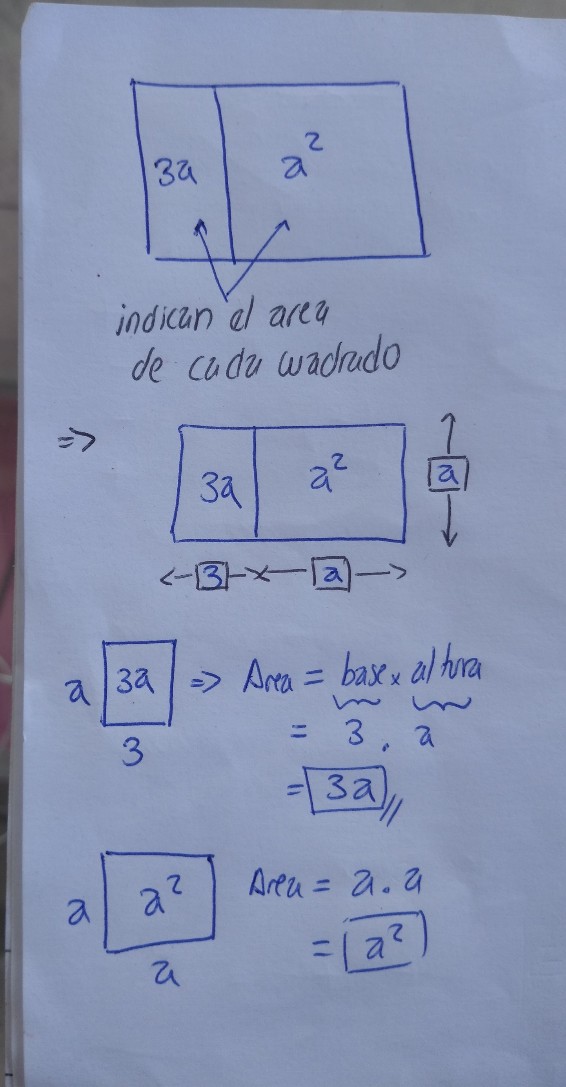 3a a²
indican el area
de cada cuadrado
=>
3a a² a
3 a
a 3a => Area = base x altura
3 = 3 . a
= 3a //
a a² Area = a . a
a = a²